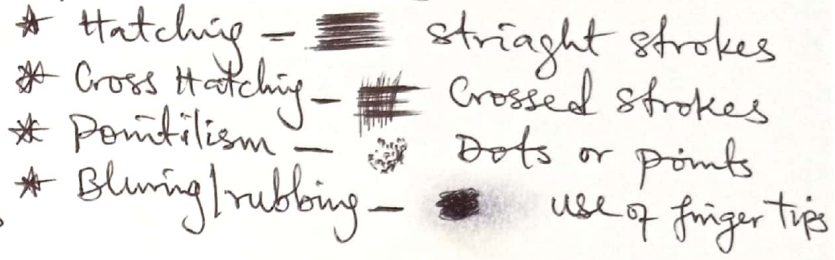 * Hatching - striaght strokes
* Cross Hatching - Crossed strokes
* Pointilism - Dots or points
* Bluring/rubbing - use of finger tips